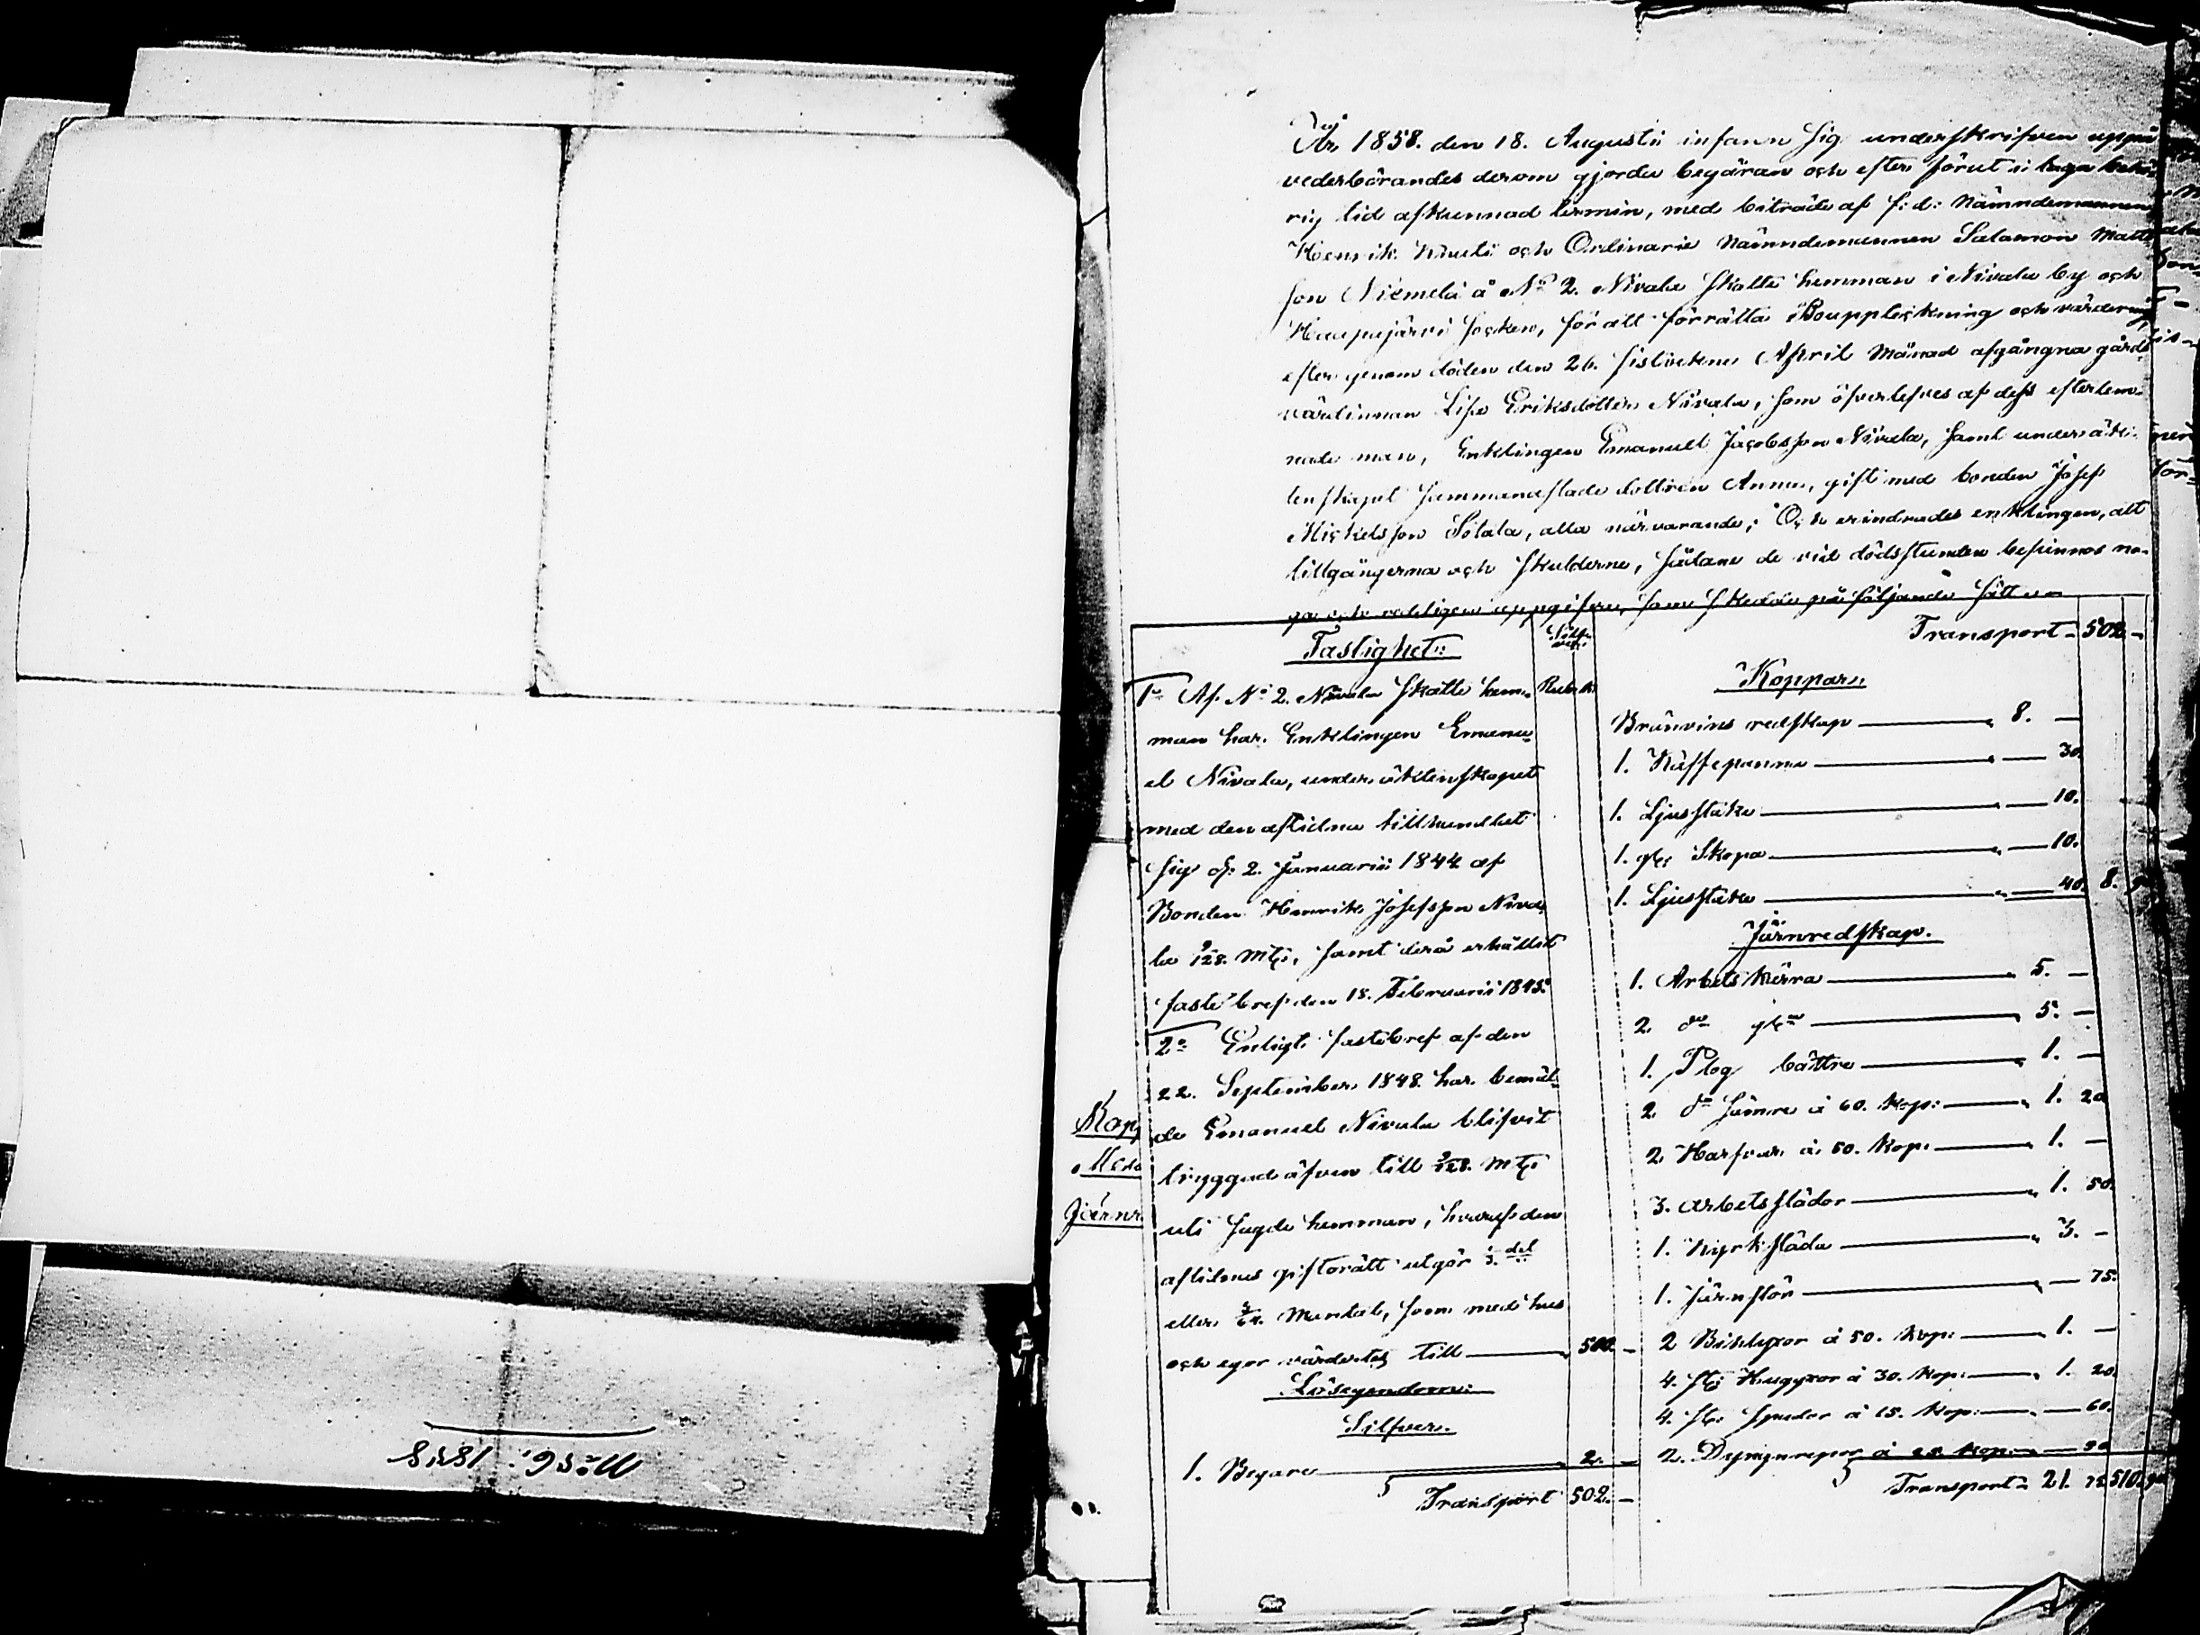 År 1858. den 18. Augustii infann sig underskrifven uppå
vederbörandes derom gjorda begäran och efter förut i laga behö-
rig tid afkunnad termin, med biträde af f: d: Nämndemannen
Henrik och Ordinarie Nämndemannen Salamon Matts
son Niemelä å No 2. Nivala Skatte hemman i Nivala by och
Haapajärvi Socken, för att förrätta Bouppteckning och värdering
efter genom döden den 26. sistvekne April Månad afgångna gård-
värdinnan Lisa Eriksdotter Nivala, som öfverlefves af dess efterlem-
nade man, Enklingen Emanuel Jacobsson Nivala, samt under äkt-
enskapet sammanaflade dottren Anna, gift med bonden Josef
Mickelsson Sölala, alla närvarande; Och erindrades enklingen, att
tillgångerna och skulderne, sådane de vid dödsstunden befinnos no-
ga och redeligen uppgifva, som skedde på följande sätt
Fastighet:
1o Af No 2. Nivala Skatte hem-
man har Enklingen Emanu-
el Nivala, under äktenskapet
med den aflidna tillhandlat
sig d: 2. Januarii 1844 af
Bonden Henrik Josefsson Niva-
la 9/128. Mtl, samt derå erhållit
faste bref den 18. Februarii 1845.
2o Enligt fastebref af den
22. September 1848. har bemäl-
de Emanuel Nivala blifvit
tryggad äfven till 9/128. Mtl
uti sagde hemman, hvaraf den
aflidnes giftorätt utgör 1/3. del
eller 3/64. Mantal, som med hus
och egor värdertes till 500. -
Lösegendom:
Silfver.
1. Begare 2. -
Transport 502. -
Transport 502. -
Koppar
Bränvins redskap 8. -
1. Kaffepanna - 30.
1. Ljusstake - 10.
1. gl: Skopa - 10.
1. Ljusstake - 40. 8. 90
Järnredskap.
1. Arbets Kärra 5. -
2. do gl: 5. -
1. Plog bättre 1. -
2 do sämre á 60. Kop: 1. 20
2. Harfvar á 50. Kop: 1. -
3. Arbetsslädor 1. 50.
1. Kyrksläda 3. -
1. Järnstör - 75.
2 Bilyxor á 50. Kop: 1. -
4. st: Huggyxor á 30. Kop: 1. 20.
4. st: Spador á 15. Kop: - 60.
2. á 25. Kop: - 50
Transport 21. 75 510. 90
Kop
Järnr
No 56. 1858